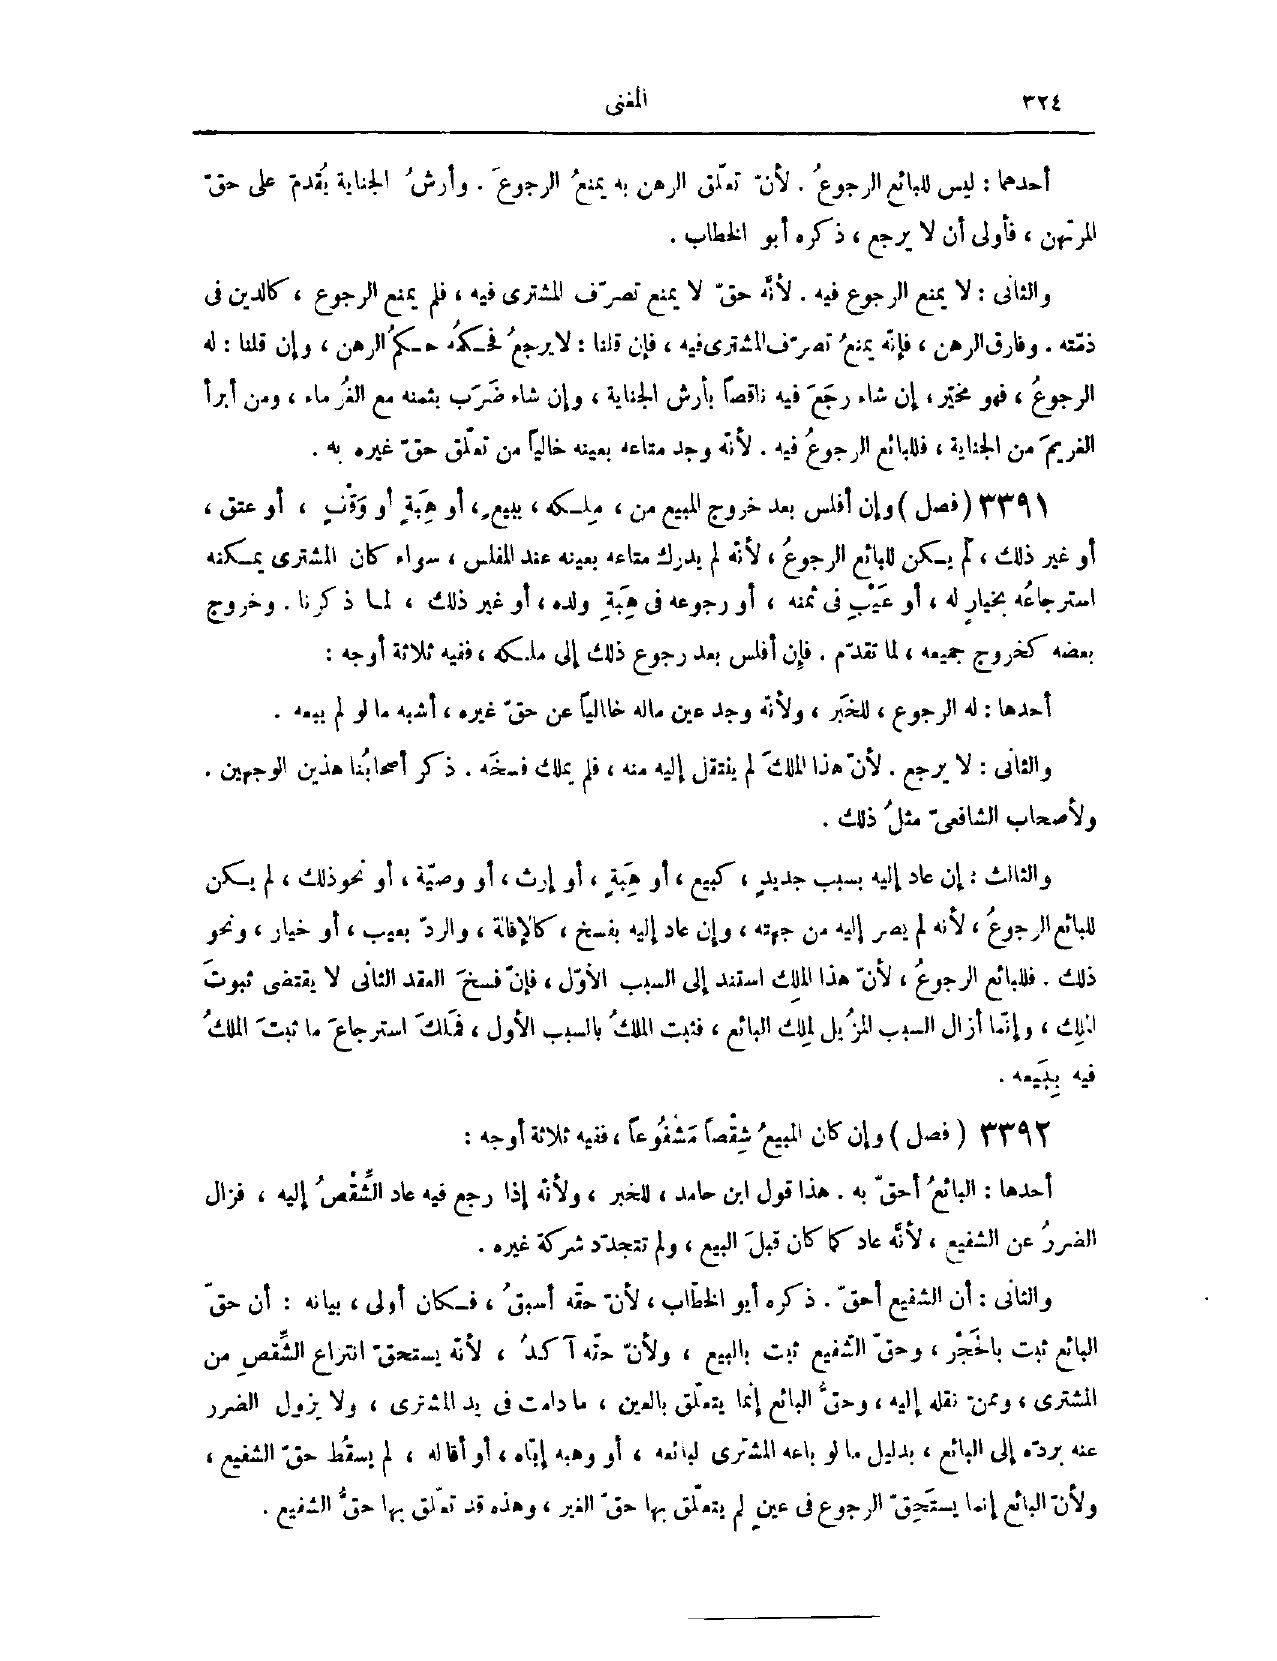 ٣٢٤
المغنى
أحدهما : ليس للبائع الرجوعُ . لأنّ تعلّق الرهن به يمنعُ الرجوعَ . وأرشُ الجناية يُقدم على حقّ
المرتهن ، فأولى أن لا يرجع ، ذكره أبو الخطاب .
والثانى : لا يمنع الرجوع فيه . لأنَّه حقّ لا يمنع تصرّف المشترى فيه ، فلم يمنع الرجوع ، كالدين فى
ذمّته . وفارق الرهن ، فإنّه يمنعُ تصرّف المشترى فيه ، فإن قلنا : لا يرجعُ فحكمُه حكمُ الرهن ، وإن قلنا : له
الرجوعُ ، فهو مخيّر ، إن شاء رجَعَ فيه ناقصاً بأرش الجناية ، وإن شاء ضَرَب بثمنه مع الغُرماء ، ومن أبرأ
الغريمَ من الجناية ، فللبائع الرجوعُ فيه . لأنّه وجد متاعه بعينه خالياً من تعلّق حقّ غيره به .
٣٣٩١ ( فصل ) وإن أفلس بعد خروج المبيع من ، مِلكه ، ببيع ، أو هِبَةٍ أو وَقْفٍ ، أو عتق ،
أو غير ذلك ، لم يكن للبائع الرجوعُ ، لأنّه لم يدرك متاعه بعينه عند المفلس ، سواء كان المشترى يمكنه
استرجاعُه بخيارٍ له ، أو عَيْبٍ فى ثمنه ، أو رجوعه فى هِبَةِ ولده ، أو غير ذلك ، لما ذكرنا . وخروج
بعضه كخروج جميعه ، لما تقدّم . فإن أفلس بعد رجوع ذلك إلى ملكه ، ففيه ثلاثة أوجه :
أحدها : له الرجوع ، للخَبَر ، ولأنّه وجد عين ماله خالياً عن حقّ غيره ، أشبه ما لو لم يبعه .
والثانى : لا يرجع . لأنّ هذا الملكَ لم ينتقل إليه منه ، فلم يملك فسخَه . ذكر أصحابُنا هذين الوجهين .
ولأصحاب الشافعىّ مثلُ ذلك .
والثالث : إن عاد إليه بسبب جديدٍ ، كبيع ، أو هِبَةٍ ، أو إرث ، أو وصيّة ، أو نحو ذلك ، لم يكن
للبائع الرجوعُ ، لأنه لم يصر إليه من جهته ، وإن عاد إليه بفسخ ، كالإقالة ، والردّ بعيب ، أو خيار ، ونحو
ذلك . فللبائع الرجوعُ ، لأنّ هذا الملِك استند إلى السبب الأوّل ، فإنّ فسخَ العقد الثانى لا يقتضى ثبوتَ
الملِك ، وإنّما أزال السبب المزُيل لمِلك البائع ، فثبت الملكُ بالسبب الأول ، فمَلكَ استرجاعَ ما ثبتَ الملكُ
فيه بِبَيعه .
٣٣٩٢ ( فصل ) وإن كان المبيعُ شِقْصاً مَشْفُوعاً ، ففيه ثلاثة أوجه :
أحدها : البائعُ أحقّ به . هذا قول ابن حامد ، للخبر ، ولأنّه إذا رجع فيه عاد الشِّقْصُ إليه ، فزال
الضررُ عن الشفيع ، لأنَّه عاد كما كان قبلَ البيع ، ولم تتجدّد شركة غيره .
والثانى : أن الشفيع أحقّ . ذكره أبو الخطّاب ، لأنّ حقّه أسبقُ ، فكان أولى ، بيانه : أن حقّ
البائع ثبت بالحَجْر ، وحقّ الشّفيع ثبت بالبيع ، ولأنّ حقّه آكدُ ، لأنّه يستحقّ انتزاع الشِّقصِ من
المشترى ، وممنّ نقله إليه ، وحقُّ البائع إنّما يتعلّق بالعين ، ما دامت فى يد المشترى ، ولا يزول الضرر
عنه بردّه إلى البائع ، بدليل ما لو باعه المشترى لبائعه ، أو وهبه إيّاه ، أو أقاله ، لم يسقُط حقّ الشفيع ،
ولأنّ البائع إنما يستَحِقّ الرجوع فى عينٍ لم يتعلّق بها حقّ الغير ، وهذه قد تعلّق بها حقُّ الشفيع .